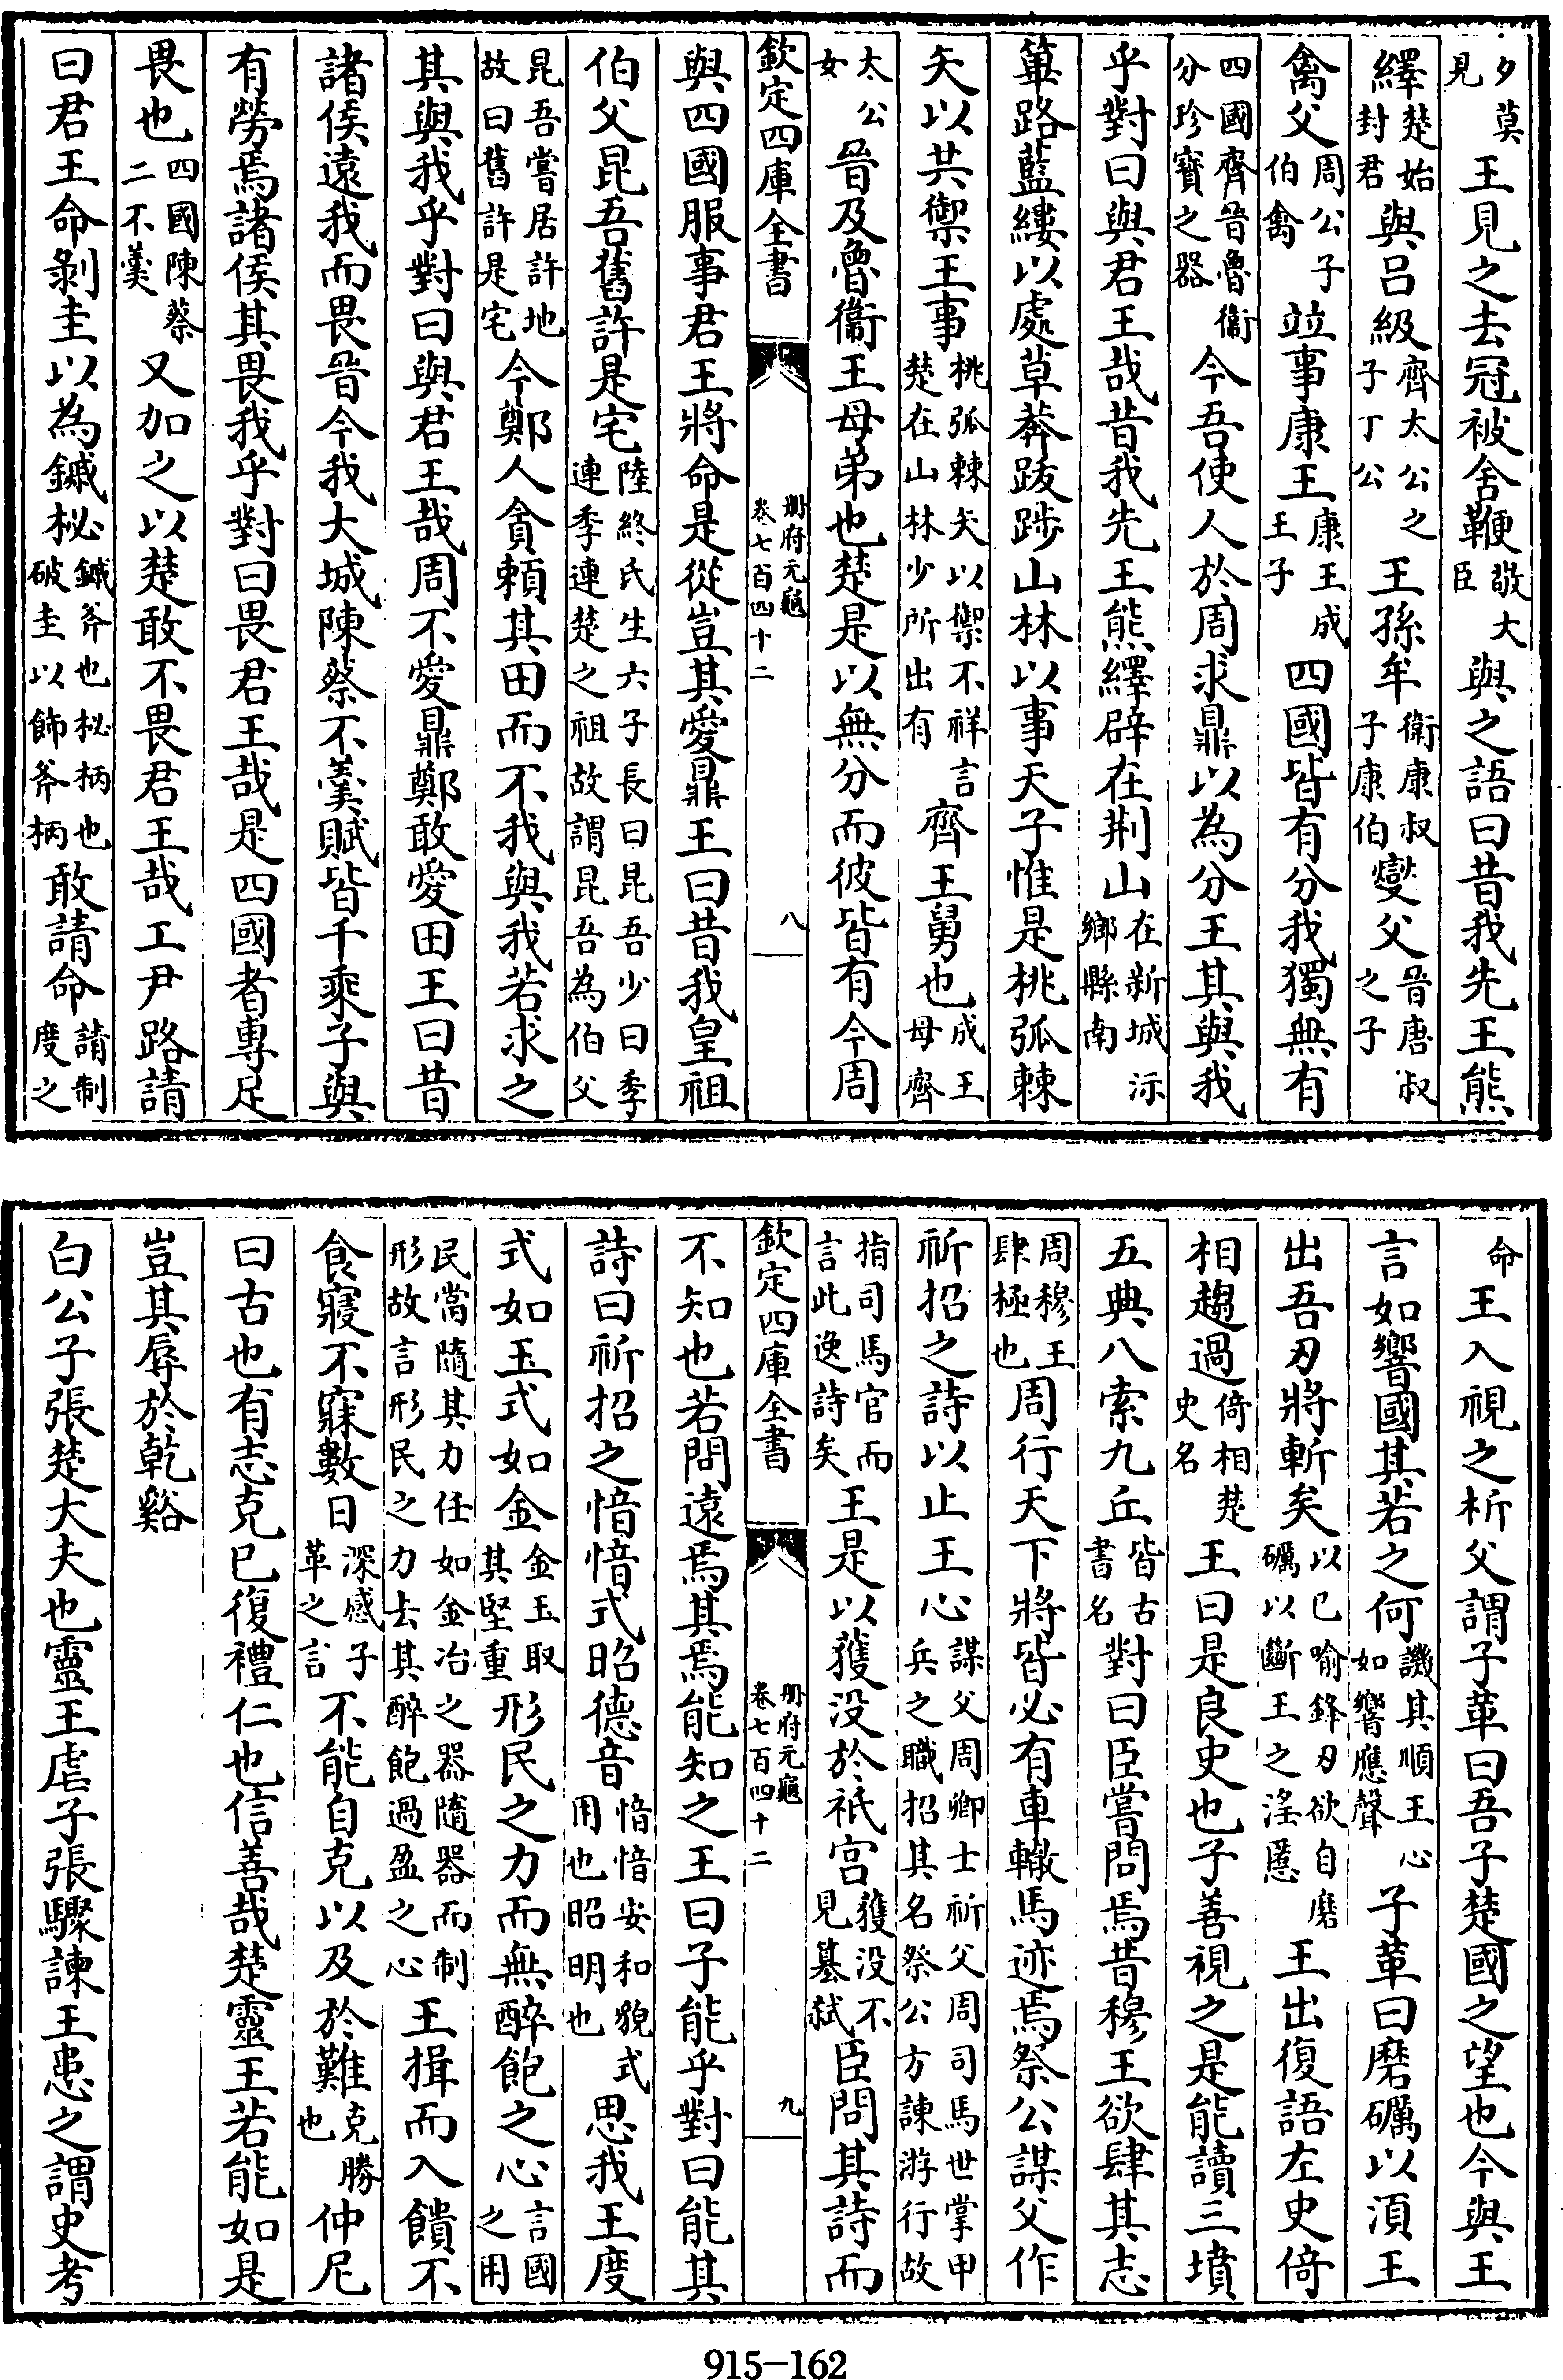 夕莫見王見之去冠被舍鞭敬大臣與之語曰昔我先王熊
繹楚始封君與呂級齊太公之子丁公王孫牟衛康叔子康伯燮父晉唐叔之子
禽父周公子伯禽竝事康王康王成王子四國皆有分我獨無有
四國齊晉魯衞分珍寶之器今吾使人於周求鼎以為分王其與我
乎對曰與君王哉昔我先王熊繹辟在荆山在新城沶鄉縣南
篳路藍縷以處草莽跋踄山林以事天子惟是桃弧棘
矢以共禦王事桃弧棘矢以禦不祥言楚在山林少所出有齊王舅也成王母齊
太公女晉及魯衞王母弟也楚是以無分而彼皆有今周
欽定四庫全書 冊府元龜卷七百四十二 八
與四國服事君王將命是從豈其愛鼎王曰昔我皇祖
伯父昆吾舊許是宅陸終氏生六子長曰昆吾少曰季連季連楚之祖故謂昆吾為伯父
昆吾嘗居許地故曰舊許是宅今鄭人貪賴其田而不我與我若求之
其與我乎對曰與君王哉周不愛鼎鄭敢愛田王曰昔
諸侯遠我而畏晉今我大城陳蔡不羮賦皆千乘子與
有勞焉諸侯其畏我乎對曰畏君王哉是四國者專足
畏也四國陳蔡二不羮又加之以楚敢不畏君王哉工尹路請
曰君王命剝圭以為鏚柲鏚斧也柲柄也破圭以飾斧柄敢請命請制度之
命王入視之析父謂子革曰吾子楚國之望也今與王
言如響國其若之何譏其順王心如響應聲子革曰磨礪以湏王
出吾刃將斬矣以已喻鋒刃欲自磨礪以斷王之淫慝王出復語左史倚
相趨過倚相楚史名王曰是良史也子善視之是能讀三墳
五典八索九丘皆古書名對曰臣嘗問焉昔穆王欲肆其志
周穆王肆極也周行天下將皆必有車轍馬迹焉祭公謀父作
祈招之詩以止王心謀父周卿士祈父周司馬世掌甲兵之職招其名祭公方諫游行故
指司馬官而言此逸詩矣王是以獲没於祇宫獲没不見簒弑臣問其詩而
欽定四庫全書 冊府元龜卷七百四十二 九
不知也若問遠焉其焉能知之王曰子能乎對曰能其
詩曰祈招之愔愔式昭德音愔愔安和貌式用也昭明也思我王度
式如玉式如金金玉取其堅重形民之力而無醉飽之心言國之用
民當隨其力任如金冶之器隨器而制形故言形民之力去其醉飽過盈之心王揖而入饋不
食寢不寐數日深感子革之言不能自克以及於難克勝也仲尼
曰古也有志克已復禮仁也信善哉楚靈王若能如是
豈其辱於乾谿
白公子張楚大夫也靈王虐子張驟諫王患之謂史考
915-162